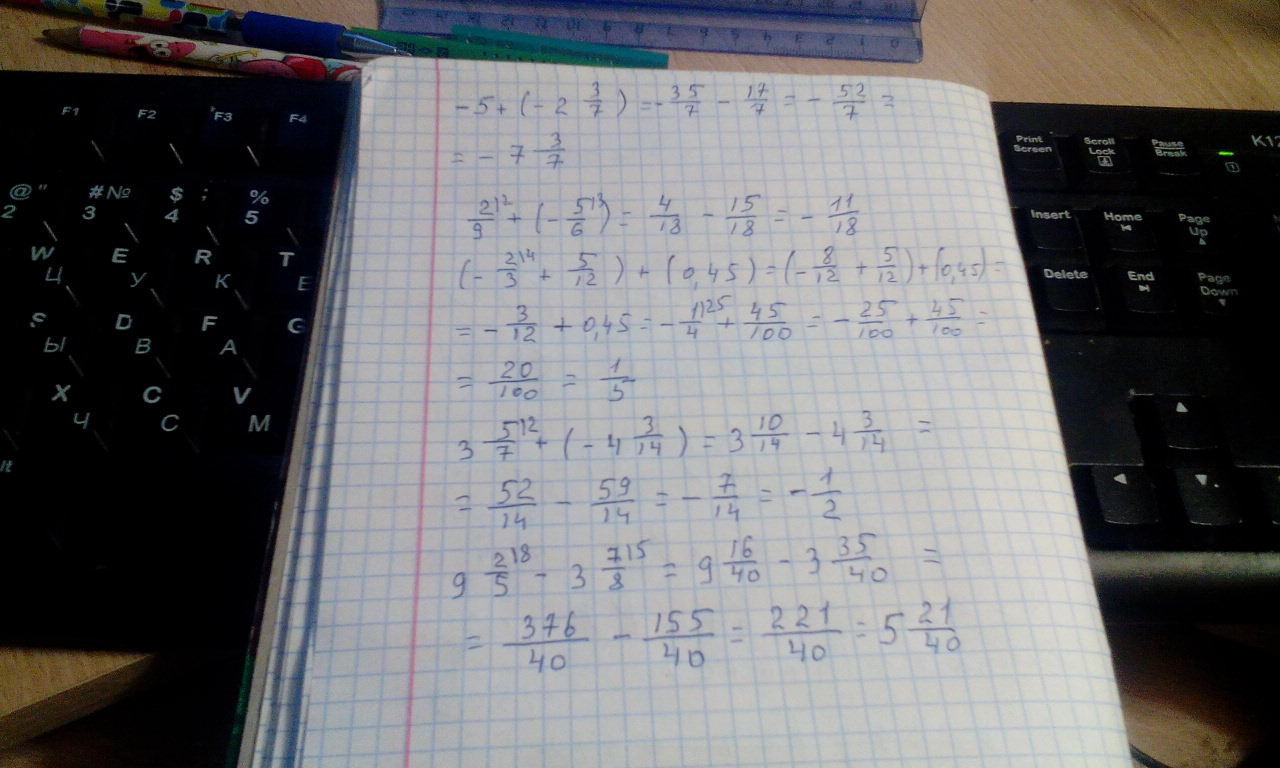 -5+(-2 3/7)=-35/7-17/7=-52/7=
=-7 3/7
2/9|2+(-5/6|3)=4/18-15/18=-11/18
(-2/3|4+5/12)+(0,45)=(-8/12+5/12)+(0,45)=
=-3/12+0,45=-1/4|25+45/100=-25/100+45/100=
=20/100=1/5
3 5/7|2+(-4 3/14)=3 10/14-4 3/14=
=52/14-59/14=-7/14=-1/2
9 2/5|8-3 7/8|5=9 16/40-3 35/40=
=376/40-155/40=221/40=5 21/40
F1 F2 F3 F4
@ " #№ $ ; %
2 3 4 5
W E R T
Ц У К Е
S D F G
Ы В А
X C V
Ч С М
Print Screen
Scroll Lock
Pause Break
Insert Home Page Up
Delete End Page Down